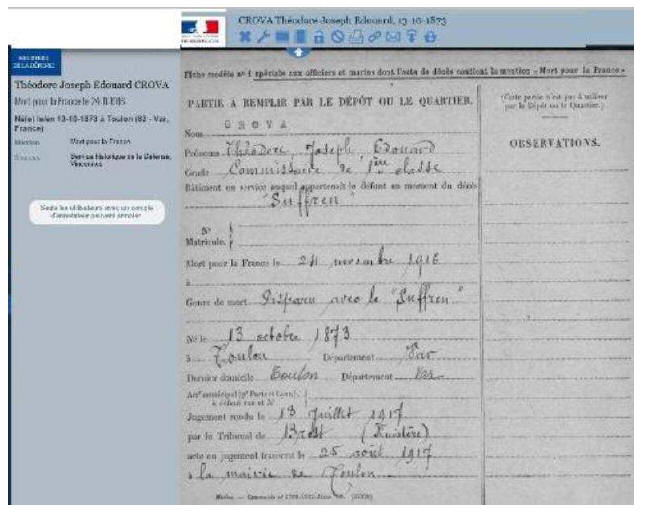 CROVA Théodore Joseph Edouard, 13-10-1873
MINISTÈRE
DE LA DÉFENSE
Théodore Joseph Edouard CROVA
Mort pour la France le 24-11-1916
Né(e) le/en 13-10-1873 à Toulon (83 - Var,
France)
Mention Mort pour la France
Service Historique de la Défense,
Vincennes
Seuls les utilisateurs avec un compte
d'annotateur peuvent annoter
Fiche modèle n° 1 spéciale aux officiers et marins dont l'acte de décès contient la mention « Mort pour la France »
PARTIE À REMPLIR PAR LE DÉPÔT OU LE QUARTIER.
(Cette partie n'est pas à utiliser
par le Dépôt ou le Quartier.)
OBSERVATIONS.
Nom CROVA
Prénoms Théodore, Joseph Edouard
Grade Commissaire de 1ère classe
Bâtiment ou service auquel appartenait le défunt au moment du décès
"Suffren"
N°
Matricule.
Mort pour la France le 24 novembre 1916
à
Genre de mort Disparu avec le "Suffren"
Né le 13 octobre 1873
à Toulon Département Var
Dernier domicile Toulon Département Var
Arr municipal (p Paris et Lyon),
à défaut rue et N°
Jugement rendu le 13 Juillet 1917
par le Tribunal de Brest (Finistère)
acte ou jugement transcrit le 25 août 1917
à la mairie de Toulon